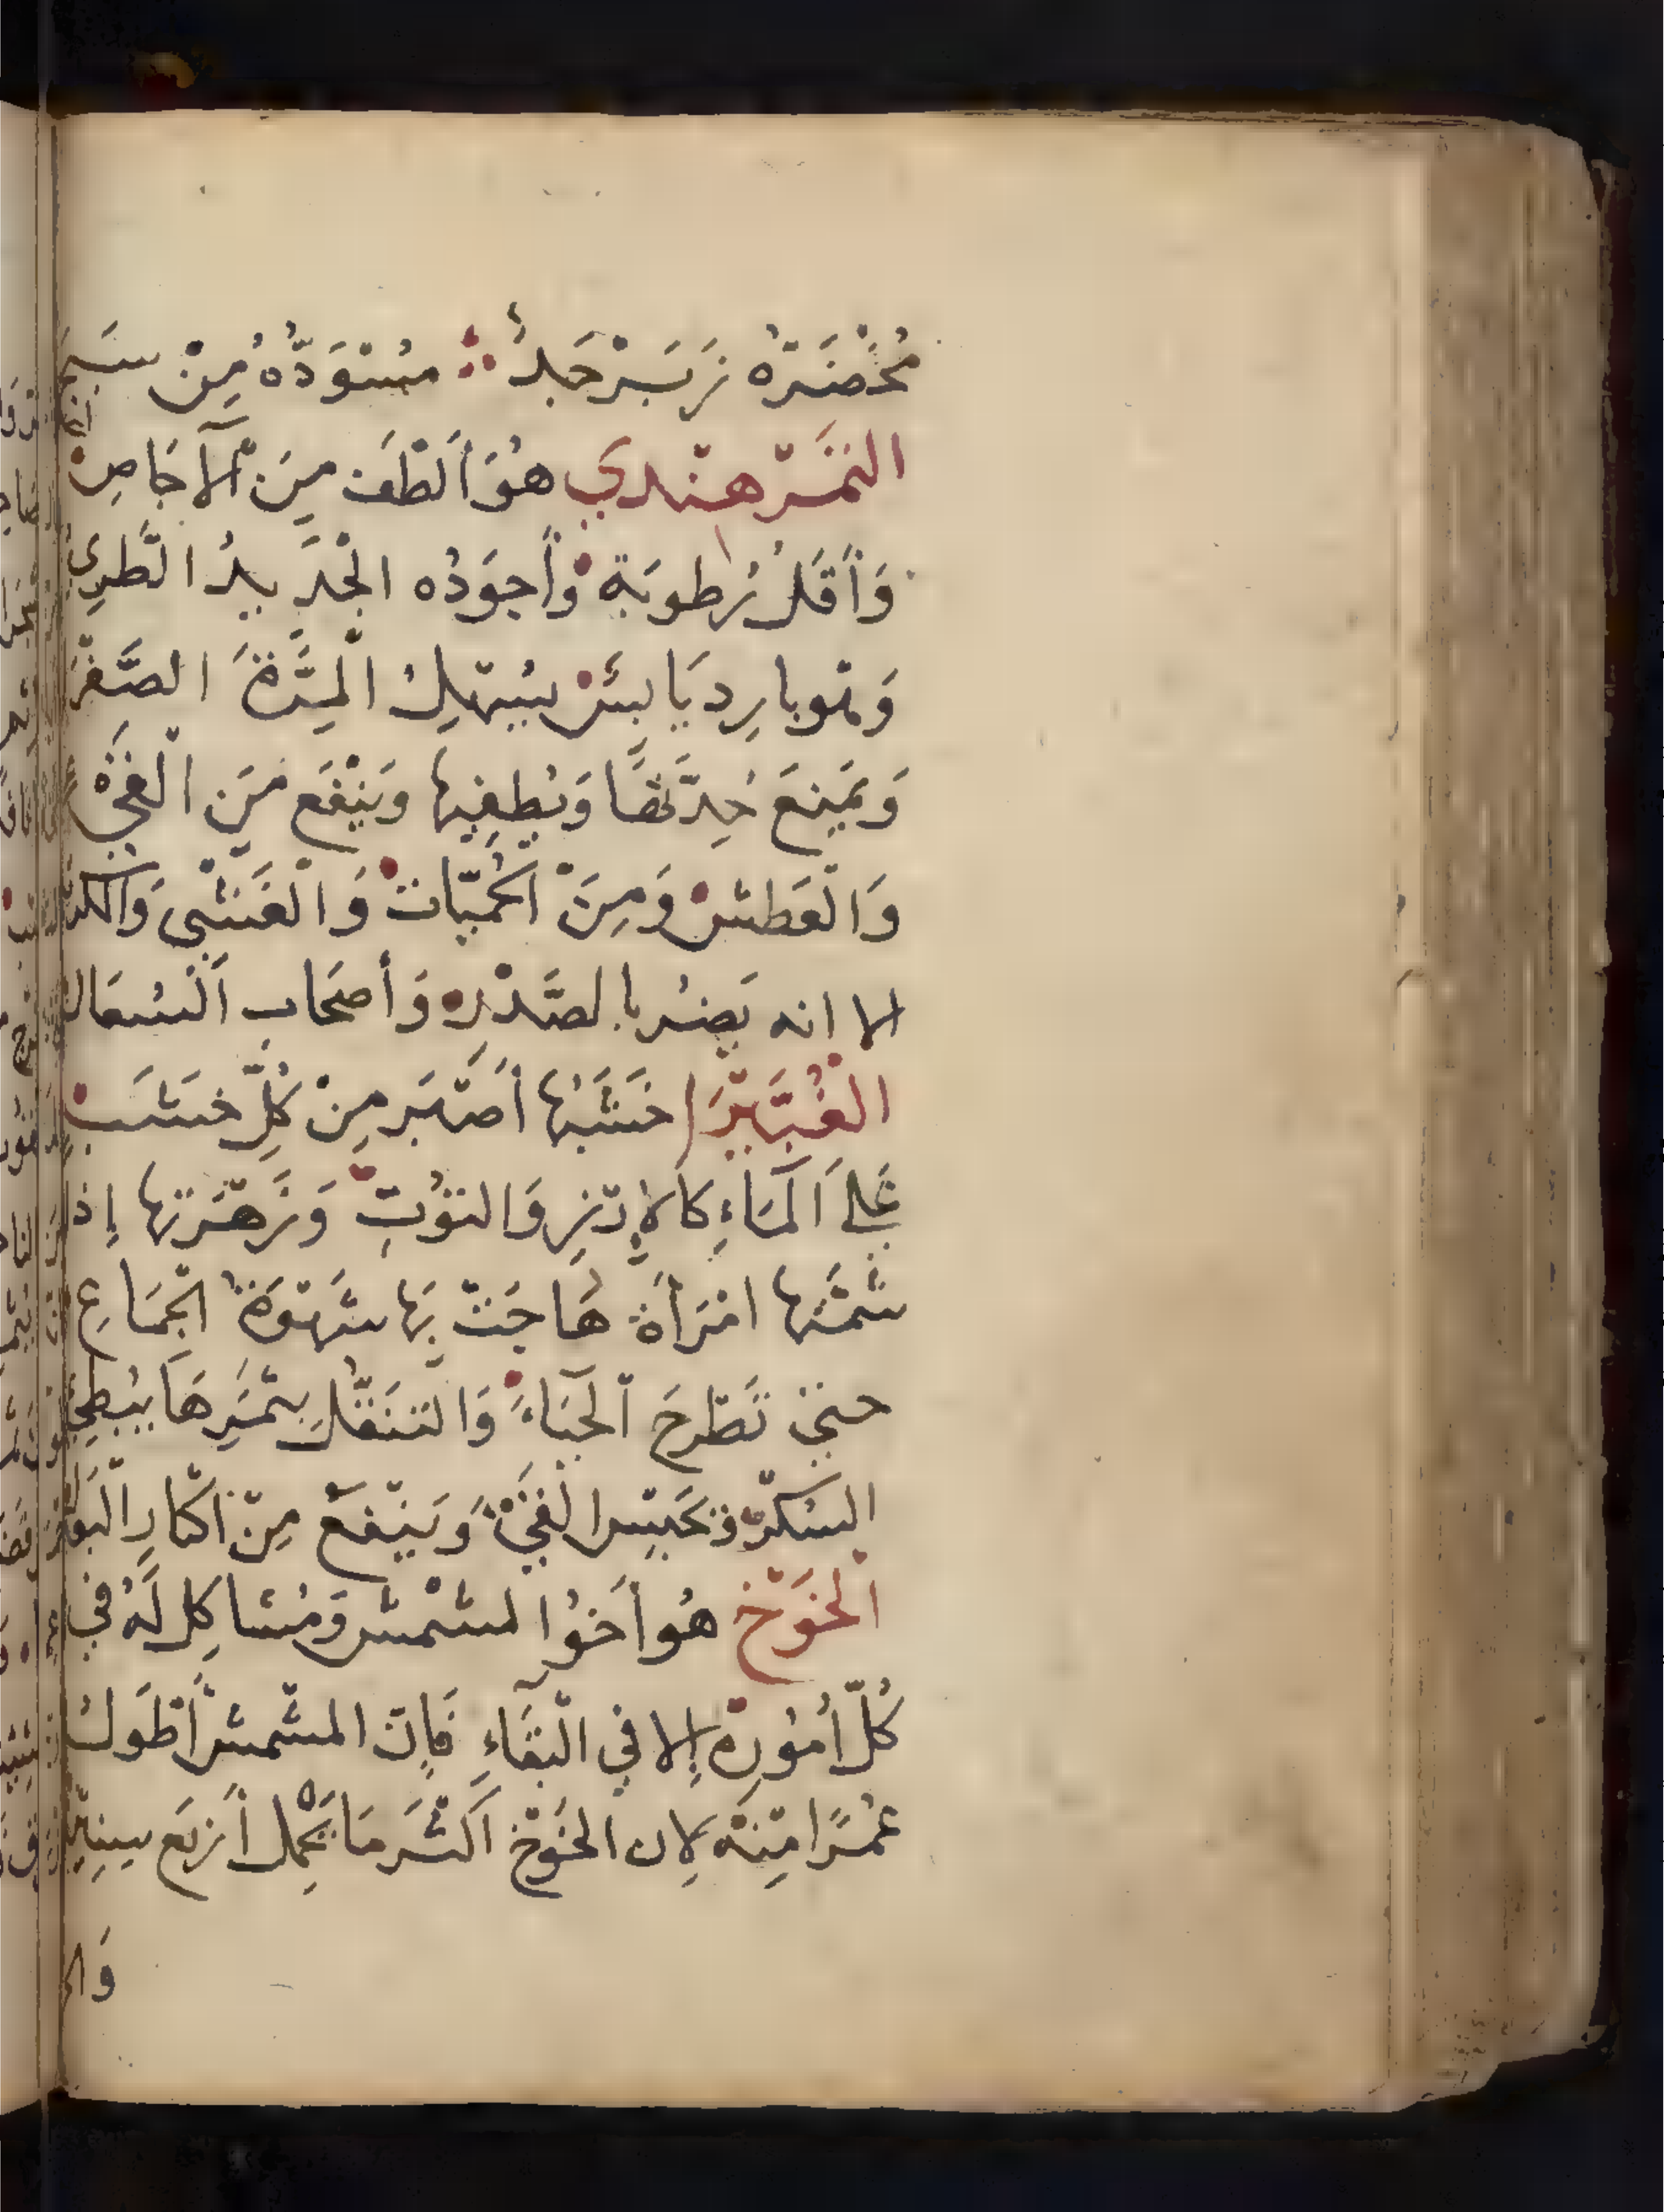 مُخْضَرُّهُ زَبَرْجَدُ ∴ مُسْوَدُّهُ مِنْ سَبَجِ
التَمَرْ هِنْدِي هُوَ أَلْطَف مِنَ الْآجَاصِ
وَأَقَلُ رُطوبَة وَأجوَدُه الْجَدِيدُ الطَّرِيُ
وَهُو بارِد يَابِسْ يُسْهِلُ الْمِرَّةَ الصَّفْرَ
وَيَمنَعَ حِدَّتهَا وَيُطفِيها وَيَنْفَع مِنَ الْقَيْ
وَالْعَطش وَمِنَ الْحُمِيَّات وَالْغَشْي وَالكَرْ
الا انه يَضُر بالصَّدْرِ وَأصحَاب السُعَال
الْغُبَيْرَا خَشَبُهَا أَصْبَر مِنْ كُلِّ خَشَب
عَلَى الْمَاءِ كالارْزِ وَالتوُتِ وَزَهْرَتها إذا
شَمَّتها امْرَأة هَاجَتْ بِهَا شَهْوَة الْجِمَاعِ
حتى تَطْرحَ الْحَيَاءَ وَالتَنَقُّل بِثَمَرِهَا يُبطِي
السُكْرَ وَيَحْبِس الْقَيْ وَيَنْفَع مِنْ اكْثَارِ الْبَوْ
الْخَوْخ هُو أَخوُ المشْمش وَمُشاكِل لَهُ في
كُلّ أُمُورِهِ إلا في الْبَقَاءِ فَإن المشمش أَطوَل
عُمْرًا مِنهُ لِان الخَوْخ اَكْثَر مَا يَحْمِل أَرْبَع سِنِين
وَالم